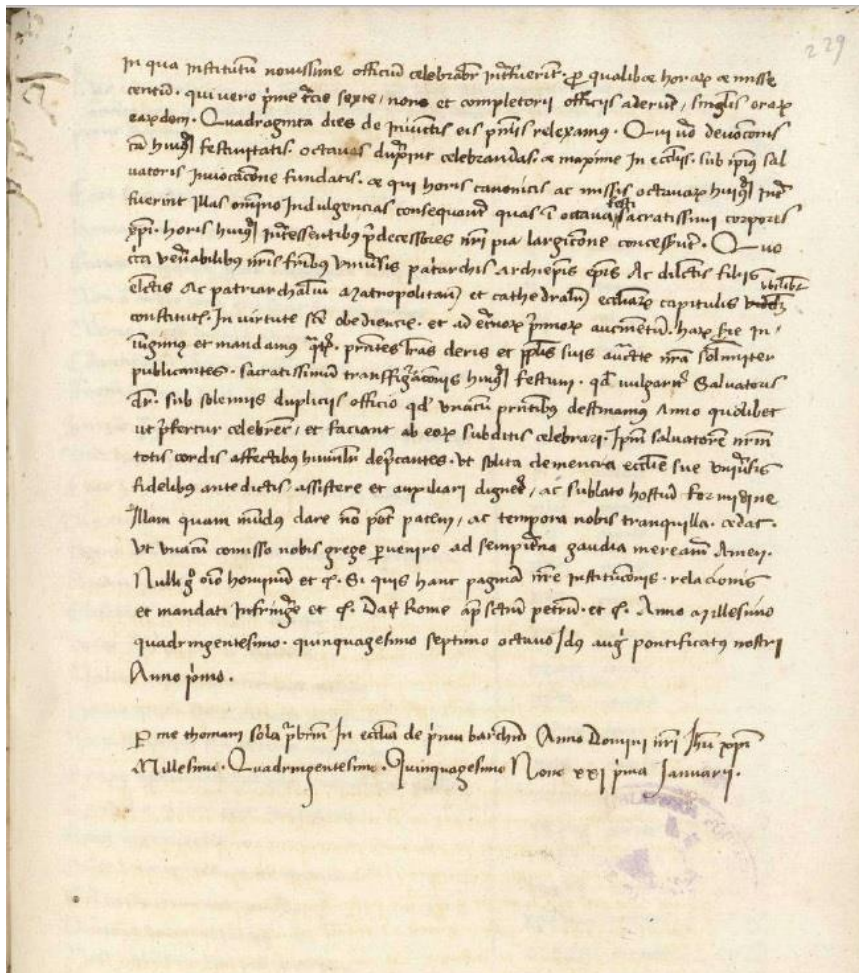 229
In qua institutũ novissime officiũ celebrabr̃ int̃fuerit. ꝓ qualibꝫ horaꝝ ac misse
centũ. qui vero p̃me t̃cie sexte, none et completorii officiis aderũt, singl̃is oraꝝ
earũdem. Quadraginta dies de iniunctis eis pñĩis relexamus. Qui ṽo devoc̃onis
cã huiꝰ festivitatis. octavas duxerint celebrandas. ac maxime In eccl̃iis. sub ip̃ius Sal
vatoris Invocac̃one fundatis. ac qui horis canonicis ac missis octavaꝝ huiꝰ int̃
fuerint Illas om̃ino Indulgencias consequant̃ quas ĩ octava festi sacratissimi corporis
xp̃i. horis huiꝰ int̃essentibus p̃decessores nr̃i pia largic̃one concesserũt. Quo
ven̄abilibus nr̃is fr̃ibus vniũsis pat̃archis Archiep̃is ep̃is Ac dilc̃tis filiis
elc̃tis Ac patriarchaliũ metropolitañ et cathedraliũ eccl̃iaꝝ capitulis vbilibet
constitutis. In virtute sc̃e obediencie. et ad
iũgimꝰ et mandamus pñtes lr̃as cleris et pp̃lis suis auc̃te nr̃a sol̃niter
publicantes. sacratissimũ transffigr̃ac̃onis huiꝰ festum. qđ vulgarit̃ Salvatoris
dr̃. sub solemnis dupliciis officio qđ vnacũ pñtibꝰ destinamus Anno quolibet
ut p̃fertur celebrent, et faciant ab eoꝝ subditis celebrari. Ip̃m salvatorẽ nr̃m
totis cordis affectibus humilr̃ dep̃cantes. vt solita clemencia eccl̃ie sue vniũsis
fidelibus antedictis, assistere et auxiliari dignet̃, ac sublato hostiũ formidine
Illam quam mũdus dare nõ põt pacem, ac tempora nobis tranquilla. cedat.
Vt vnacũ comisso nobis grege ꝑvenire ad sempit̃na gaudia mereamr̃ Amen.
Nulli gͦ om̃io hominũ et c̃. Si quis hanc paginã nr̃e institũconis. relacionis
et mandati Infring̃e et c̃. Dat̃ Rome ap̃ sctũm petrũ. et c̃. Anno Millesimo
quadringentesimo. quinquagesimo septimo octavo Idꝰ aug̃ pontificatꝰ nostri
Anno p̃imo.
ꝑ me thomam sola p̃brm̃ In eccl̃ia de pinu barchñ Anno Domini nr̃i Jh̃u xp̃ı̃
Millesimo. Quadringentesimo. Quinquagesimo Nono xxi p̃ma Januarii.